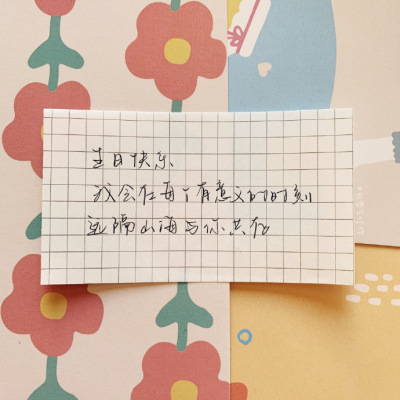 生日快乐
我会在每个有意义的时刻
远隔山海与你共存